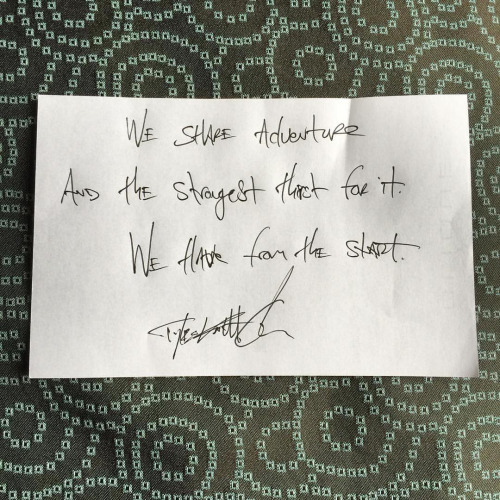 WE SHARE Adventure
AND the strongest thirst for it.
WE HAVE from the START.